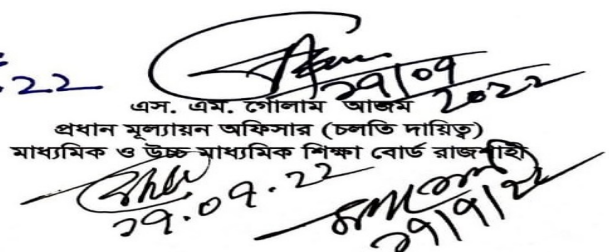 22
29/09
2022
এস. এম. গোলাম আজম
প্রধান মূল্যায়ন অফিসার (চলতি দায়িত্ব)
মাধ্যমিক ও উচ্চ মাধ্যমিক শিক্ষা বোর্ড রাজশাহী
২৯.০৯.২২
২৯/৯/২২